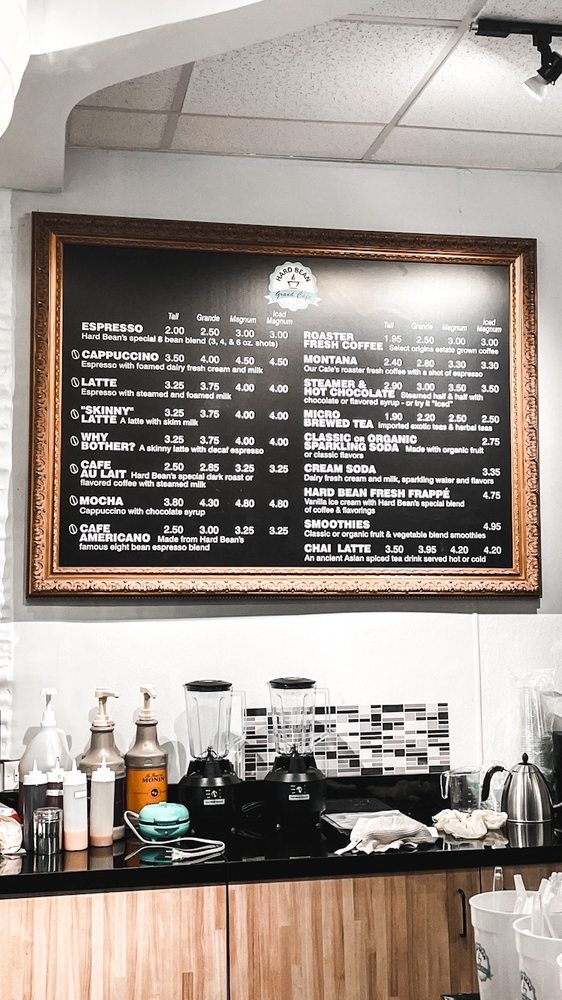 HARD BEAN
Grand Café
Tall Grande Magnum Iced Magnum
ESPRESSO 2.00 2.50 3.00 3.00
Hard Bean's special 8 bean blend (3, 4, & 6 oz. shots)
CAPPUCCINO 3.50 4.00 4.50 4.50
Espresso with foamed dairy fresh cream and milk
LATTE 3.25 3.75 4.00 4.00
Espresso with steamed and foamed milk
"SKINNY" 3.25 3.75 4.00 4.00
LATTE A latte with skim milk
WHY 3.25 3.75 4.00 4.00
BOTHER? A skinny latte with decaf espresso
CAFE 2.50 2.85 3.25 3.25
AU LAIT Hard Bean's special dark roast or
flavored coffee with steamed milk
MOCHA 3.80 4.30 4.80 4.80
Cappuccino with chocolate syrup
CAFE 2.50 3.00 3.25 3.25
AMERICANO Made from Hard Bean's
famous eight bean espresso blend
Tall Grande Magnum Iced Magnum
ROASTER 1.95 2.50 3.00 3.00
FRESH COFFEE Select origins estate grown coffee
MONTANA 2.40 2.80 3.30 3.30
Our Cafe's roaster fresh coffee with a shot of espresso
STEAMER & 2.90 3.00 3.50 3.50
HOT CHOCOLATE Steamed half & half with
chocolate or flavored syrup - or try it "Iced"
MICRO 1.90 2.20 2.50 2.50
BREWED TEA Imported exotic teas & herbal teas
CLASSIC OR ORGANIC 2.75
SPARKLING SODA Made with organic fruit
or classic flavors
CREAM SODA 3.35
Dairy fresh cream and milk, sparkling water and flavors
HARD BEAN FRESH FRAPPÉ 4.75
Vanilla ice cream with Hard Bean's special blend
of coffee & flavorings
SMOOTHIES 4.95
Classic or organic fruit & vegetable blend smoothies
CHAI LATTE 3.50 3.95 4.20 4.20
An ancient Asian spiced tea drink served hot or cold
MONIN